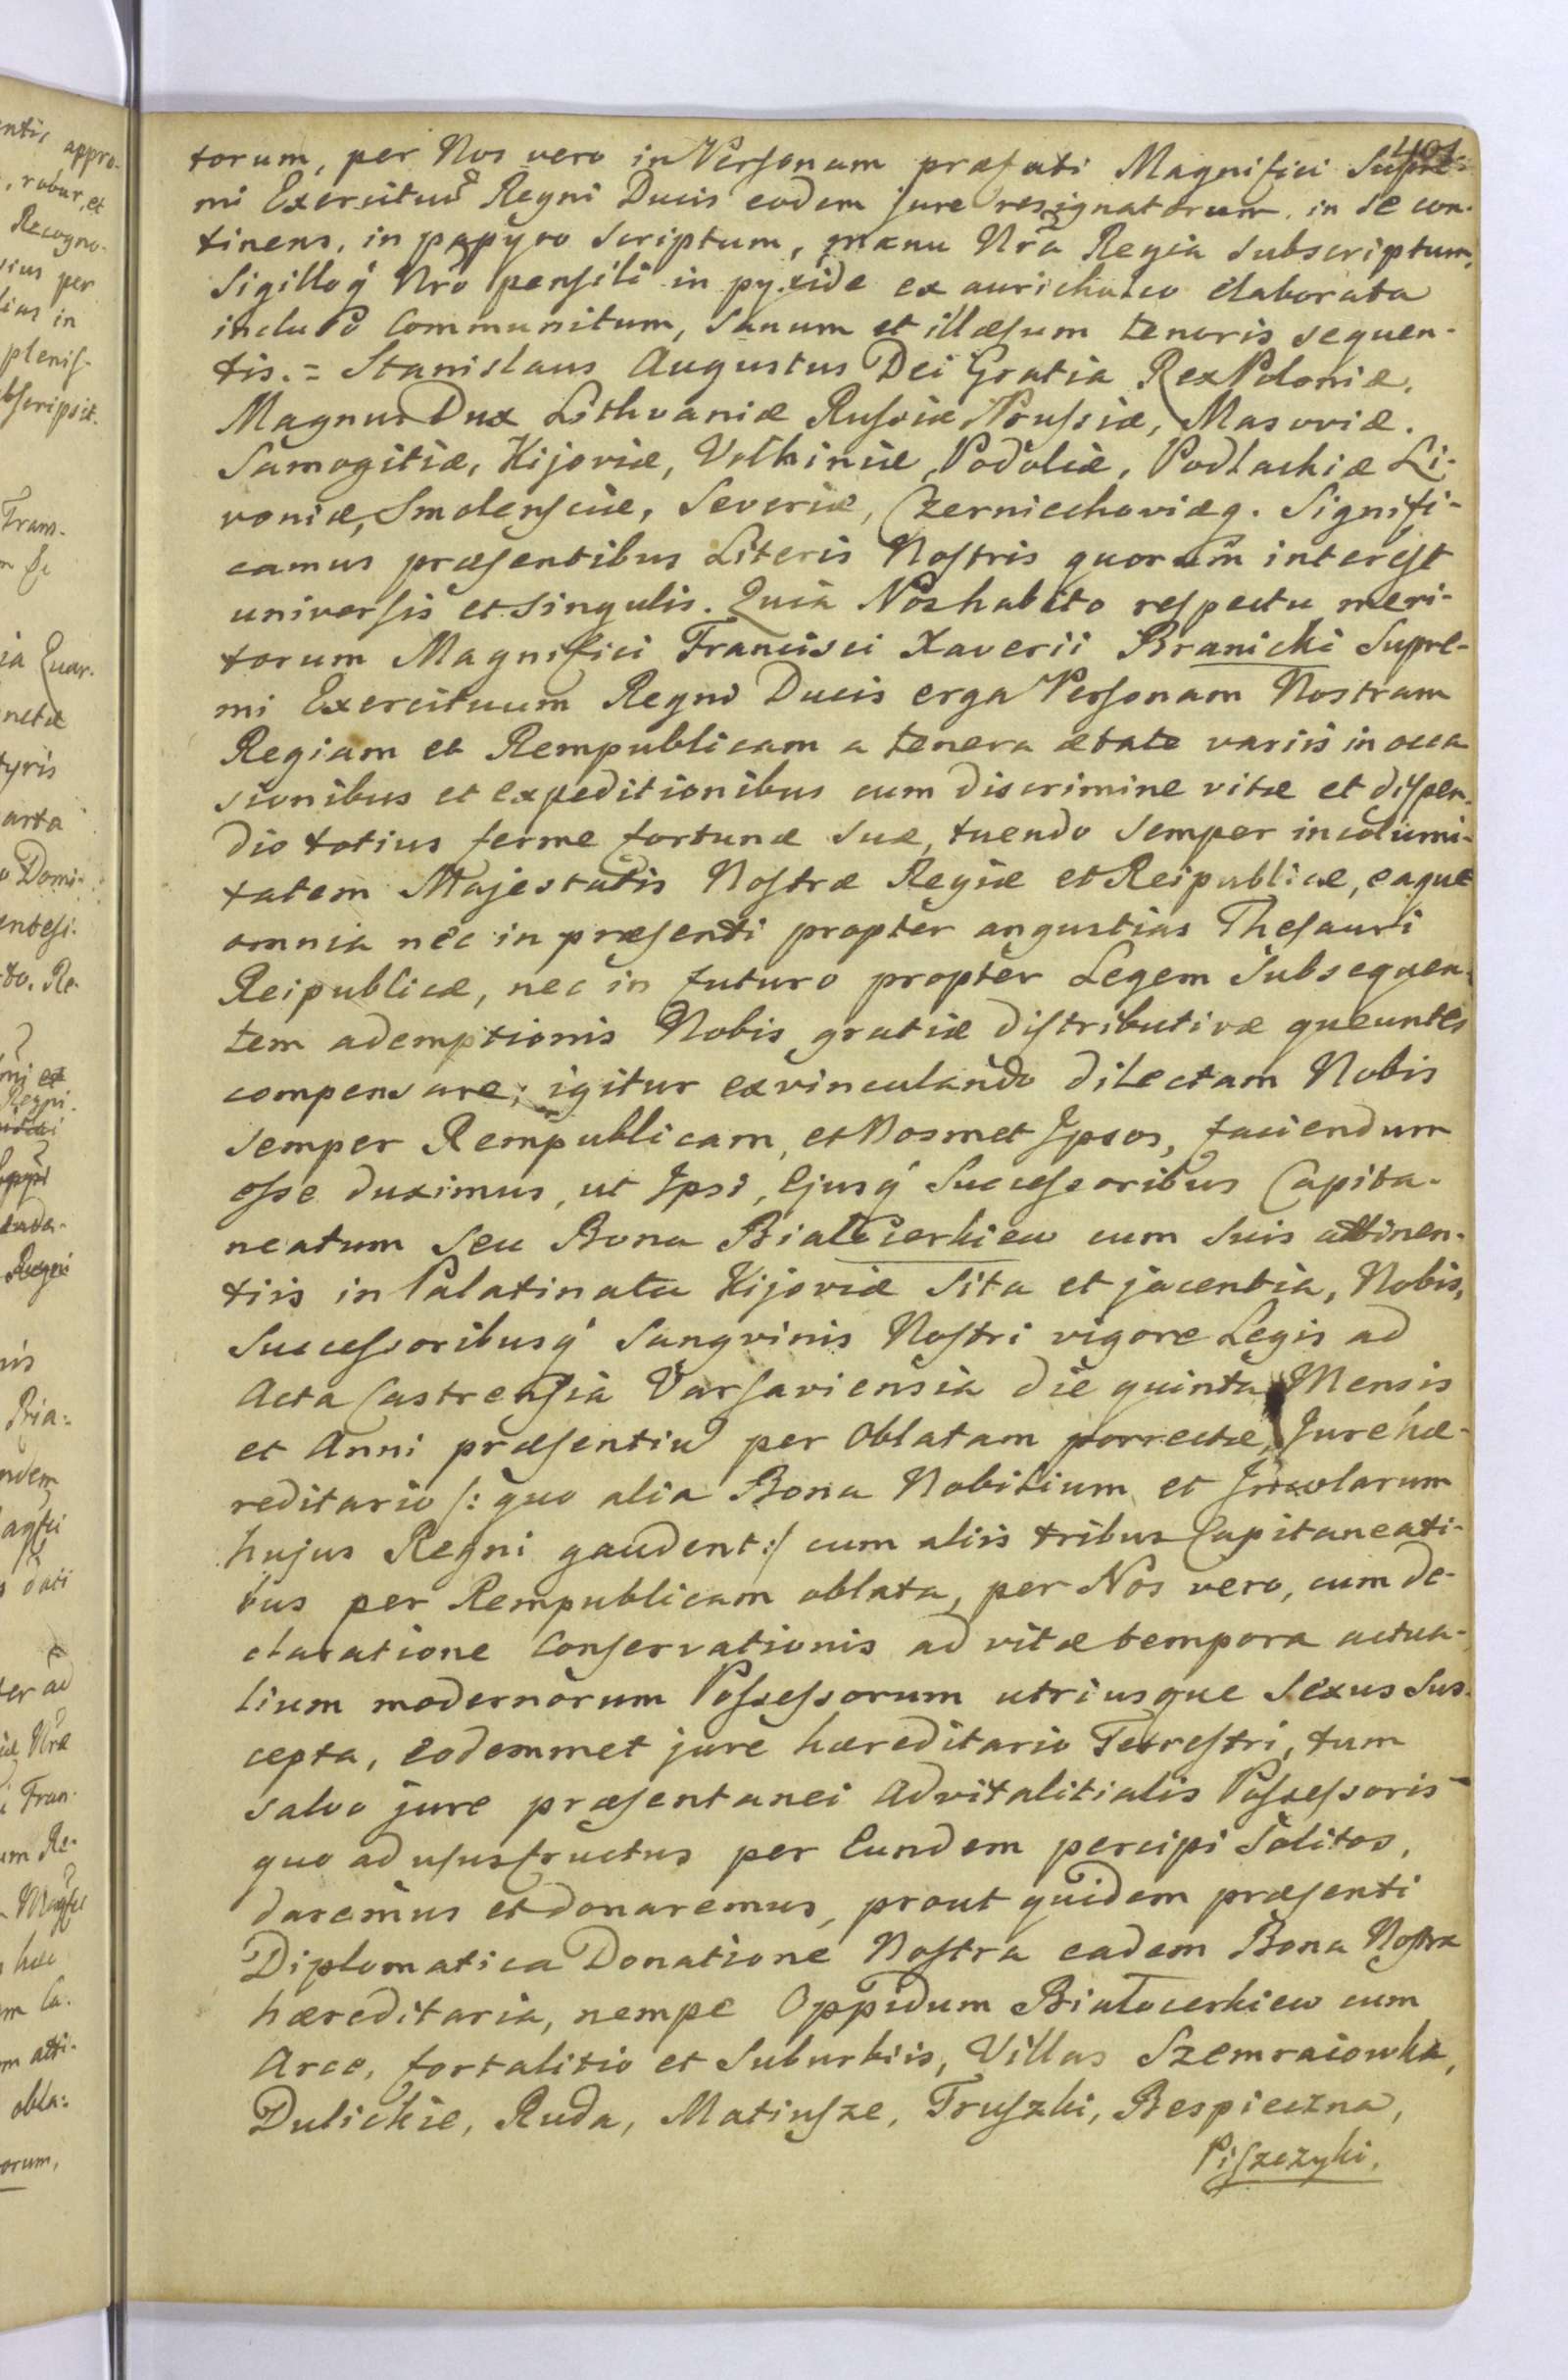 401.
torum, per Nos vero in Personam præfati Magnifici Supre-
mi Exercituū Regni Ducis eodem jure resignatorum, in se con-
tinens, in papyro scriptum, manu Nrã Regia subscriptum,
Sigilloq́ Nrõ pensili in pyxide ex aurichalco elaborata
incluso communitum, sanum et illæsum tenoris sequen-
tis. = Stanislaus Augustus Dei Gratia Rex Poloniæ,
Magnus Dux Lithvaniæ Russiæ Prussiæ, Masoviæ.
Samogitiæ, Kijoviæ, Volhiniæ, Podoliæ, Podlachiæ Li-
voniæ, Smolensciæ, Severiæ, Czerniechoviæq. Signifi-
camus præsentibus Literis Nostris quorum interest
universis et singulis. Quia Nos habito respectu meri-
torum Magnifici Francisci Xaverii Branicki Supre-
mi Exercituum Regni Ducis erga Personam Nostram
Regiam et Rempublicam a tenera ætate variis in occa
sionibus et expeditionibus cum discrimine vitæ et dispen-
dio totius ferme fortunæ suæ, tuendo semper incolumi-
tatem Majestatis Nostræ Regiæ et Reipublicæ, eaque
omnia nec in præsenti propter angustias Thesauri
Reipublicæ, nec in futuro propter Legem Subsequen-
tem ademptionis Nobis gratiæ distributivæ queuntes
compensare; igitur exvinculando dilectam Nobis
semper Rempublicam, et Nosmet Ipsos, faciendum
esse duximus, ut Ipsi, Ejusq́ Successoribus Capita-
neatum seu Bona Białocerkiew cum suis attinen-
tiis in Palatinatu Kijoviæ sita et jacentia, Nobis,
Successoribusq́ Sangvinis Nostri vigore Legis ad
Acta Castrensia Varsaviensia die quinta Mensis
et Anni præsentiū per Oblatam porrectæ, Jure hæ-
reditario /: quo alia Bona Nobilium et Incolarum
hujus Regni gaudent :/ cum aliis tribus Capitaneati-
bus per Rempublicam oblata, per Nos vero, cum de-
claratione conservationis ad vitæ tempora actua-
lium modernorum Possessorum utriusque Sexus sus-
cepta, eodemmet jure hæreditario Terrestri, tum
salvo jure præsentanei Advitalitialis Possessoris
quo ad ususfructus per Eundem percipi solitos,
daremus et donaremus, prout quidem præsenti
Diplomatica Donatione Nostra eadem Bona Nostra
hæreditaria, nempe Oppidum Białocerkiew cum
Arce, fortalitio et Suburbiis, Villas Szemraiowka,
Dulickie, Ruda, Matiusze, Truszki, Bespieczna,
Piszczyki,